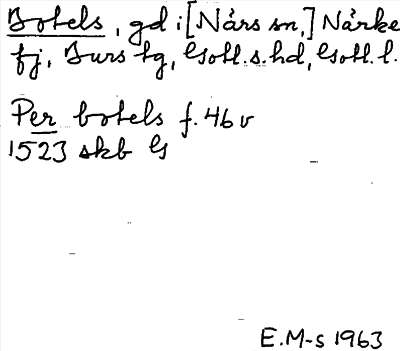 Botels, gd i [Närs sn,] Närke
fj, Burs tg, Gotl. s. hd, Gotl. l.
Per botels f. 46 v
1523 skb G
E.M-s 1963